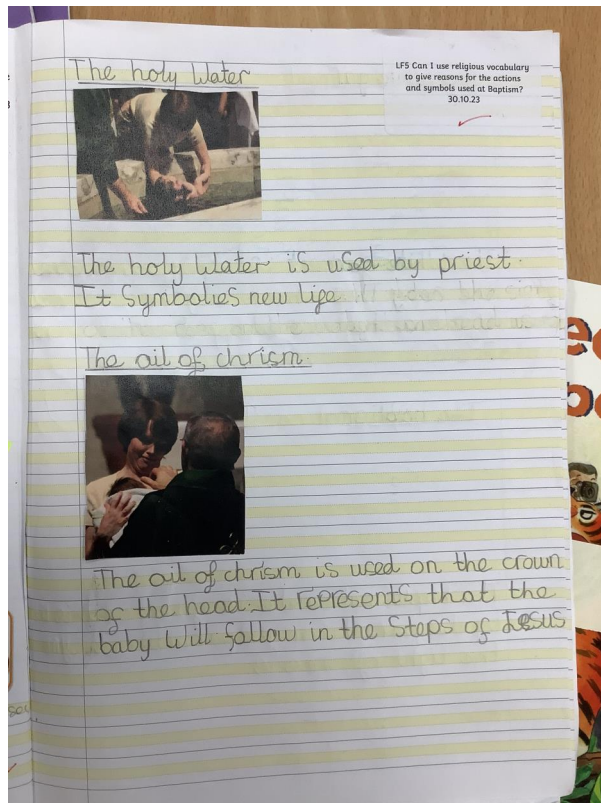 The holy Water
LF5 Can I use religious vocabulary
to give reasons for the actions
and symbols used at Baptism?
30.10.23
The holy Water is used by priest.
It Symbolies new life
The oil of chrism.
The oil of chrism is used on the crown
of the head. It represents that the
baby Will follow in the Steps of Jesus